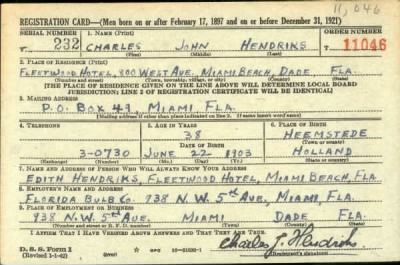 11,046
REGISTRATION CARD—(Men born on or after February 17, 1897 and on or before December 31, 1921)
SERIAL NUMBER 1. NAME (Print) ORDER NUMBER
T 232 CHARLES JOHN HENDRIKS T 11046
(First) (Middle) (Last)
2. PLACE OF RESIDENCE (Print)
FLEETWOOD HOTEL, 800 WEST AVE, MIAMI BEACH, DADE FLA.
(Number and street) (Town, township, village, or city) (County) (State)
(THE PLACE OF RESIDENCE GIVEN ON THE LINE ABOVE WILL DETERMINE LOCAL BOARD
JURISDICTION; LINE 2 OF REGISTRATION CERTIFICATE WILL BE IDENTICAL)
3. MAILING ADDRESS
P.O. BOX 49, MIAMI, FLA.
(Mailing address if other than place indicated on line 2. If same insert word same)
4. TELEPHONE 5. AGE IN YEARS 6. PLACE OF BIRTH
38 HEEMSTEDE
DATE OF BIRTH (Town or county)
3-0730 JUNE 22 1903 HOLLAND
(Exchange) (Number) (Mo.) (Day) (Yr.) (State or country)
7. NAME AND ADDRESS OF PERSON WHO WILL ALWAYS KNOW YOUR ADDRESS
EDITH HENDRIKS, FLEETWOOD HOTEL, MIAMI BEACH, FLA.
8. EMPLOYER'S NAME AND ADDRESS
FLORIDA BULB CO. 938 N.W. 5th AVE, MIAMI, FLA.
9. PLACE OF EMPLOYMENT OR BUSINESS
938 N.W. 5th AVE. MIAMI DADE FLA.
(Number and street or R. F. D. number) (Town) (County) (State)
I AFFIRM THAT I HAVE VERIFIED ABOVE ANSWERS AND THAT THEY ARE TRUE.
D. S. S. Form 1 GPO
(Revised 1-1-42) (over) Charles J. Hendriks
(Registrant's signature)